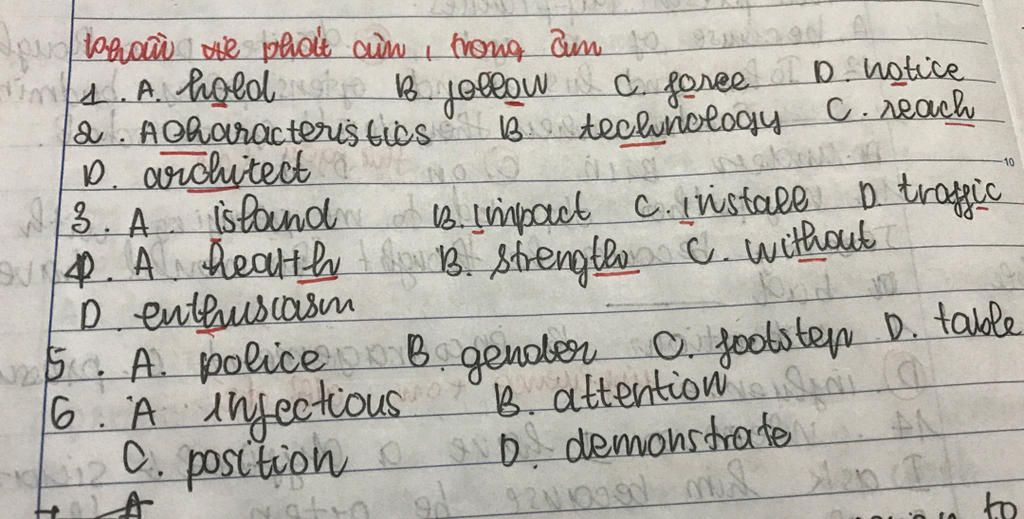 khoanh phát âm, trọng âm
1. A. hold B. yellow C. force D. notice
2. A Characteristics B technology C. reach
D. architect
3. A island B. impact C. install D. traffic
4. A health B. strength C. without
D. enthusiasm
5. A. police B. gender C. footstep D. table
6. A infectious B. attention
C. position D. demonstrate
to